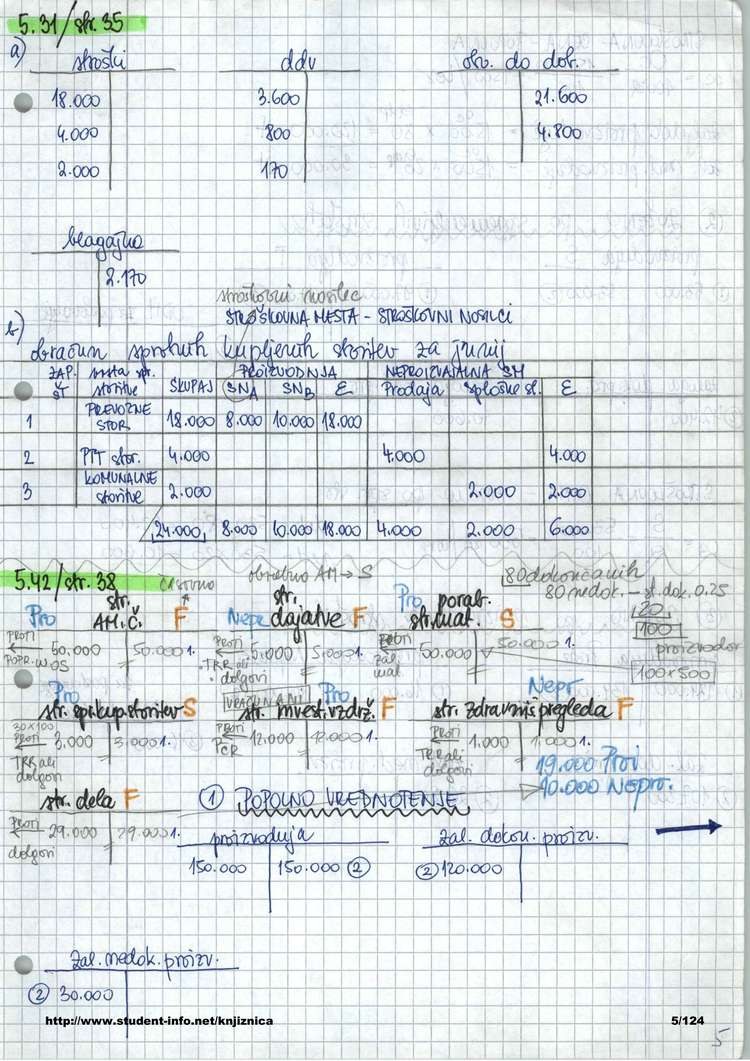 5.31/str.35
a)
stroški ddv obv. do dob.
18.000 3.600 21.600
4.000 800 4.800
2.000 170
blagajna
2.170
stroškovni nosilec
STROŠKOVNA MESTA - STROŠKOVNI NOSILCI
b)
obračun sprotnih kupljenih storitev za junij
ZAP. ŠT vrsta spr. storitve SKUPAJ PROIZVODNJA NEPROIZVAJALNA SM
SNA SNB Σ Prodaja splošne sl. Σ
1 PREVOZNE STOR 18.000 8.000 10.000 18.000
2 PTT stor. 4.000 4.000 4.000
3 KOMUNALNE storitve 2.000 2.000 2.000
24.000 8.000 10.000 18.000 4.000 2.000 6.000
5.42/str.38 časovno obratno AM → S 80 dokončanih
80 nedok. - st. dok. 0.25
20
100
proizvodov
100x500
Pro str. AM.Č. F Nepr str. dajatve F Pro porab. str. mat. S
PROTI POPR.W OS 50.000 50.000 1. PROTI TRR ali dolgovi 5.000 5.000 1. PROTI zal mat 50.000 50.000 1.
VRAČUNANI
Pro Pro Nepr
str. spr. kup. storitev S str. invest. vzdrž. F str. zdravniš pregleda F
30x100 PROTI TRR ali dolgovi 3.000 3.000 1. PROTI PČR 12.000 12.000 1. PROTI TRR ali dolgovi 1.000 1.000 1.
19.000 Proi
10.000 Nepro.
str. dela F ① POPOLNO VREDNOTENJE
PROTI dolgovi 29.000 29.000 1.
proizvodnja zal. dokon. proizv.
150.000 150.000 ② ② 120.000
zal. nedok. proizv.
② 30.000
http://www.student-info.net/knjiznica 5/124
5